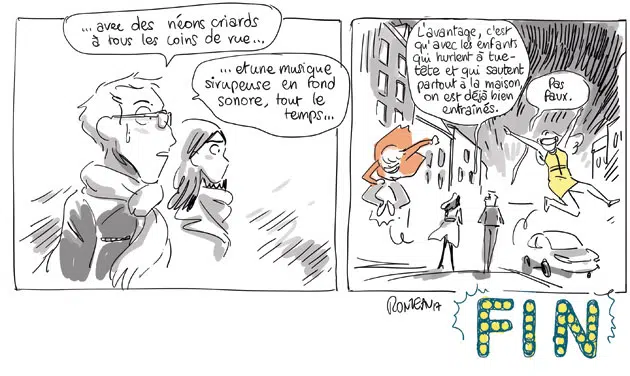 ...avec des néons criards
à tous les coins de rue...
...et une musique
sirupeuse en fond
sonore, tout le
temps...
L'avantage, c'est
qu'avec les enfants
qui hurlent à tue-
tête et qui sautent
partout à la maison,
on est déjà bien
entraînés.
Pas
faux.
FIN